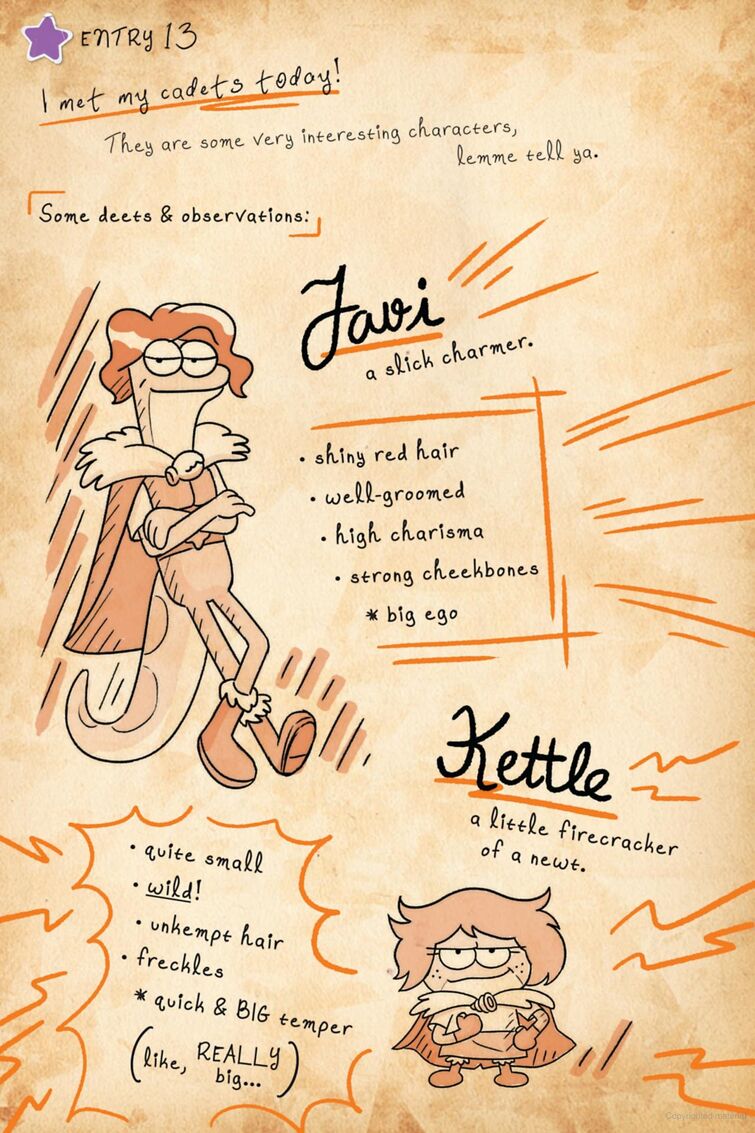 ENTRY 13
I met my cadets today!
They are some very interesting characters,
lemme tell ya.
Some deets & observations:
Javi
a slick charmer.
• shiny red hair
• well-groomed
• high charisma
• strong cheekbones
* big ego
Kettle
a little firecracker
of a newt.
• quite small
• wild!
• unkempt hair
• freckles
* quick & BIG temper
(like, REALLY
big...)
Copyrighted material